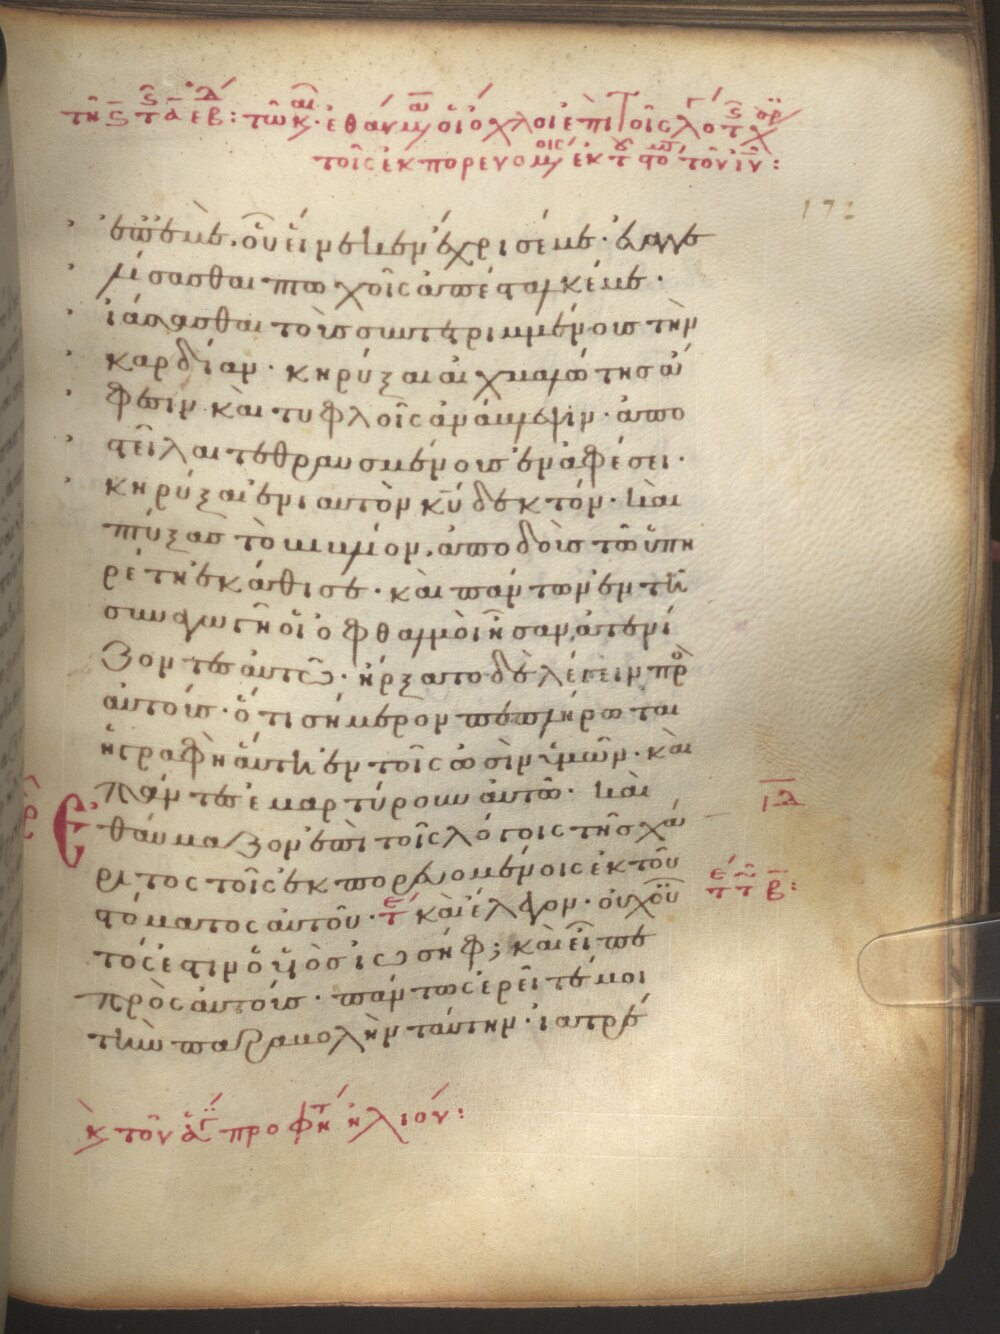 τῆς ϛ τ α εβ: τῶ κ· ἐθαύμ οἱ ὄχλοι ἐπὶ τοῖς λο τ χ
τοῖς ἐκπορευομ ἐκ τ στο τοῦ ἰυ:
172
ἐπ' ἐμέ. οὗ εἵνεκεν ἔχρισέ με· εὐαγγε
λίσασθαι πτωχοῖς ἀπέσταλκέ με·
ἰάσασθαι τοὺς συντετριμμένους τὴν
καρδίαν· κηρύξαι αἰχμαλώτοις ἄ
φεσιν καὶ τυφλοῖς ἀνάβλεψιν· ἀπο
στεῖλαι τεθραυσμένους ἐν ἀφέσει·
κηρύξαι ἐνιαυτὸν κυ δεκτόν· καὶ
πτύξας τὸ βιβλίον. ἀποδοὺς τῶ ὑπη
ρέτη ἐκάθισε· καὶ πάντων ἐν τῆ
συναγωγῆ οἱ ὀφθαλμοὶ ἦσαν ἀτενί
ζοντες αὐτῶ· ἤρξατο δὲ λέγειν πρ
αὐτούς· ὅτι σήμερον πεπλήρωται
ἡ γραφὴ αὕτη ἐν τοῖς ὠσὶν ὑμῶν· καὶ
πάντες ἐμαρτύρουν αὐτῶ· καὶ
ἐθαύμαζον ἐπὶ τοῖς λόγοις τῆς χά
ριτος τοῖς ἐκπορευομένοις ἐκ τοῦ
στόματος αὐτοῦ· τ καὶ ἔλεγον· οὐχ οὗ
τός ἐστιν ὁ υἱὸς ἰωσήφ; καὶ εἶπε
πρὸς αὐτούς· πάντως ἐρεῖτέ μοι
τὴν παραβολὴν ταύτην· ἰατρὲ
κ τοῦ ἁγ προφητ ἠλιού: